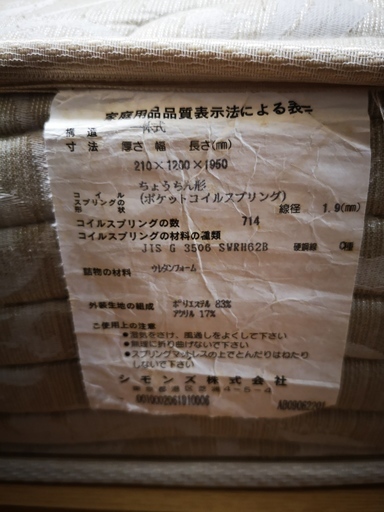 家庭用品品質表示法による表示
構造
寸法 厚さ 幅 長さ(mm)
210×1200×1950
コイルスプリングの形状 ちょうちん形 (ポケットコイルスプリング) 線径 1.9(mm)
コイルスプリングの数 714
コイルスプリングの材料の種類
JIS G 3506 SWRH62B 硬鋼線
詰物の材料 ウレタンフォーム
外装生地の組成 ポリエステル 83%
アクリル 17%
ご使用上の注意
●湿気をさけ、風通しをよくして下さい
●無理に折り曲げないで下さい
●スプリングマットレスの上でとんだりはねたり
しないで下さい
シモンズ株式会社